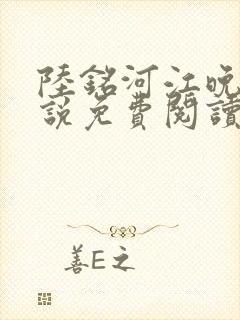 陸銘河江晚
說免費閱讀
善E之